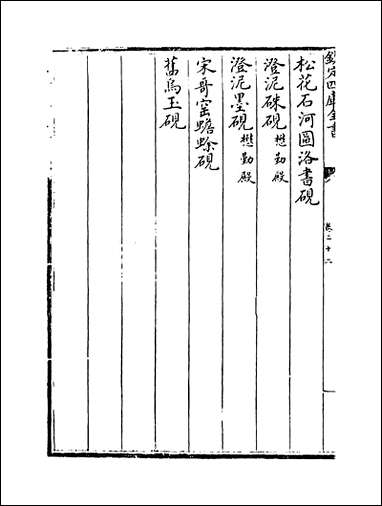 欽定四庫全書
卷二十二
松花石河圖洛書硯
澄泥硃硯懋勤殿
澄泥墨硯懋勤殿
宋哥窰蟾蜍硯
舊烏玉硯